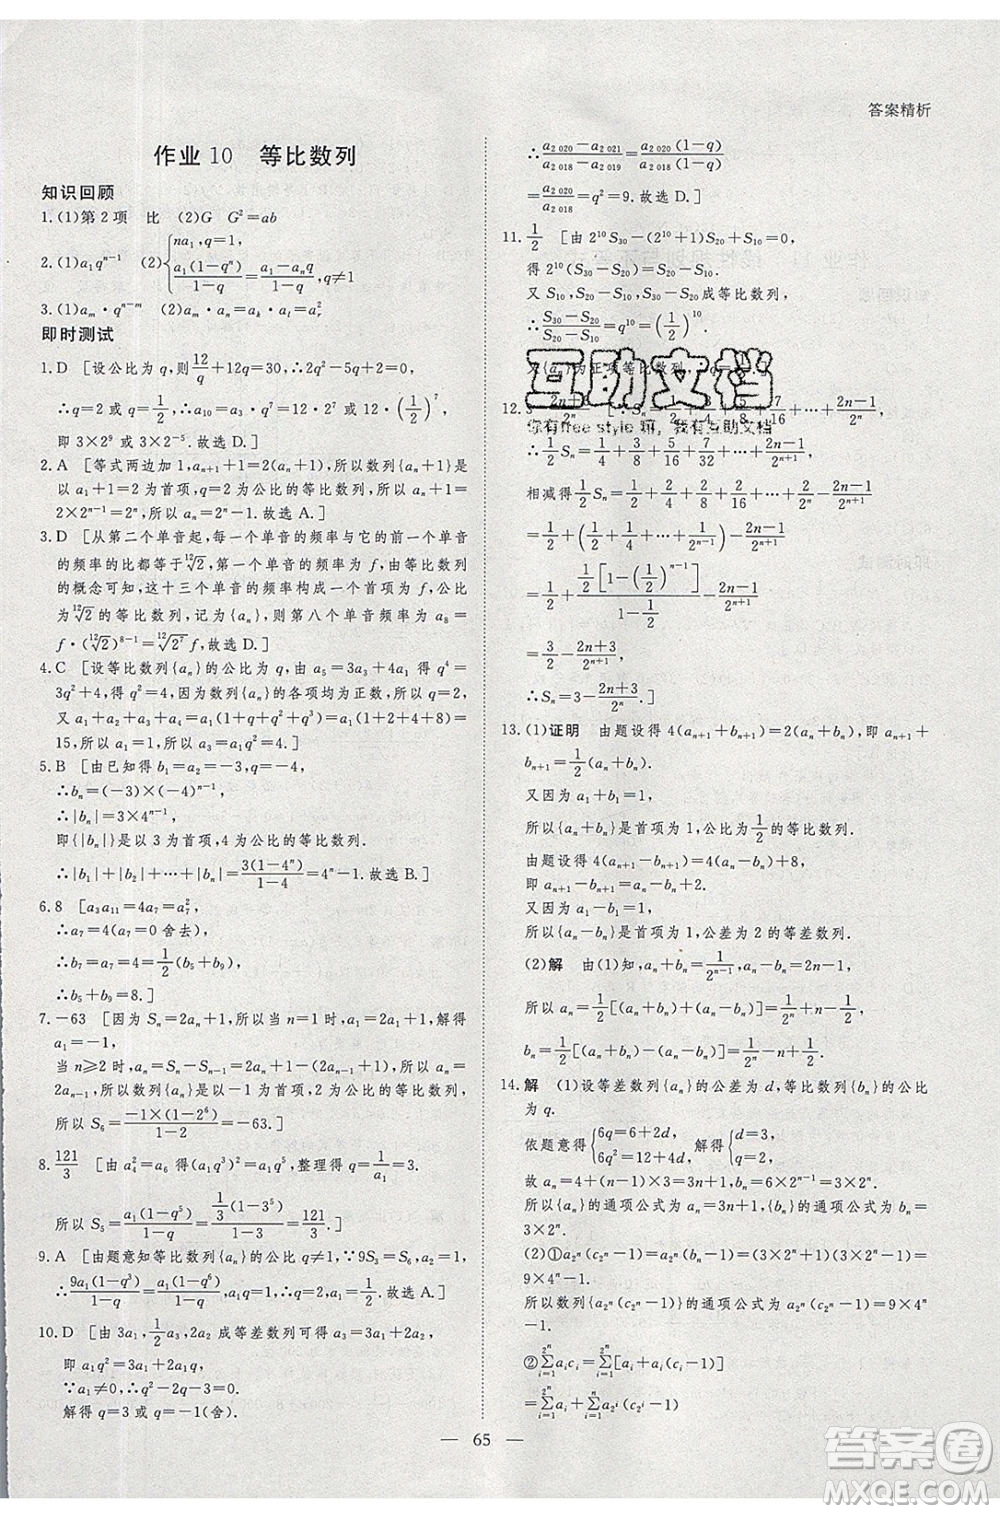 答案精析
作业 10 等比数列
知识回顾
1.(1)第2项 比 (2)G G²=ab
2.(1)a₁qⁿ⁻¹ (2){na₁,q=1, a₁(1-qⁿ)/(1-q)=(a₁-aₙq)/(1-q),q≠1
3.(1)aₘ·qⁿ⁻ᵐ (2)aₘ·aₙ=aₖ·aₗ=aᵣ²
即时测试
1.D [设公比为 q,则12/q+12q=30,∴2q²-5q+2=0,
∴q=2 或 q=1/2,∴a₁₀=a₃·q⁷=12·2⁷ 或 12·(1/2)⁷,
即 3×2⁹ 或 3×2⁻⁵.故选 D.]
2.A [等式两边加 1,aₙ₊₁+1=2(aₙ+1),所以数列{aₙ+1}是
以 a₁+1=2 为首项,q=2 为公比的等比数列,所以 aₙ+1=
2×2ⁿ⁻¹=2ⁿ,所以 aₙ=2ⁿ-1.故选 A.]
3.D [从第二个单音起,每一个单音的频率与它的前一个单音
的频率的比都等于¹²√2,第一个单音的频率为 f,由等比数列
的概念可知,这十三个单音的频率构成一个首项为 f,公比
为¹²√2的等比数列,记为{aₙ},则第八个单音频率为 a₈=
f·(¹²√2)⁸⁻¹=¹²√2⁷ f,故选 D.]
4.C [设等比数列{aₙ}的公比为 q,由 a₅=3a₃+4a₁得 q⁴=
3q²+4,得 q²=4,因为数列{aₙ}的各项均为正数,所以 q=2,
又 a₁+a₂+a₃+a₄=a₁(1+q+q²+q³)=a₁(1+2+4+8)=
15,所以 a₁=1,所以 a₃=a₁q²=4.]
5.B [由已知得 b₁=a₂=-3,q=-4,
∴bₙ=(-3)×(-4)ⁿ⁻¹,
∴|bₙ|=3×4ⁿ⁻¹,
即{|bₙ|}是以 3 为首项,4 为公比的等比数列.
∴|b₁|+|b₂|+⋯+|bₙ|=3(1-4ⁿ)/(1-4)=4ⁿ-1.故选 B.]
6.8 [a₃a₁₁=4a₇=a₇²,
∴a₇=4(a₇=0 舍去),
∴b₇=a₇=4=1/2(b₅+b₉),
∴b₅+b₉=8.]
7.-63 [因为 Sₙ=2aₙ+1,所以当 n=1 时,a₁=2a₁+1,解得
a₁=-1,
当 n≥2 时,aₙ=Sₙ-Sₙ₋₁=2aₙ+1-(2aₙ₋₁+1),所以 aₙ=
2aₙ₋₁,所以数列{aₙ}是以-1 为首项,2 为公比的等比数列,
所以 S₆=-1×(1-2⁶)/(1-2)=-63.]
8.121/3 [由 a₄²=a₆ 得(a₁q³)²=a₁q⁵,整理得 q=1/a₁=3.
所以 S₅=a₁(1-q⁵)/(1-q)=1/3(1-3⁵)/(1-3)=121/3.]
9.A [由题意知等比数列{aₙ}的公比 q≠1,∵9S₃=S₆,a₂=1,
∴9a₁(1-q³)/(1-q)=a₁(1-q⁶)/(1-q),a₁q=1,∴q=2,a₁=1/2.故选 A.]
10.D [由 3a₁,1/2a₃,2a₂ 成等差数列可得 a₃=3a₁+2a₂,
即 a₁q²=3a₁+2a₁q,
∵a₁≠0,∴q²-2q-3=0.
解得 q=3 或 q=-1(舍).
∴(a₂₀₂₀-a₂₀₂₁)/(a₂₀₁₈-a₂₀₁₉)=a₂₀₂₀(1-q)/a₂₀₁₈(1-q)
=a₂₀₂₀/a₂₀₁₈=q²=9.故选 D.]
11.1/2 [由 2¹⁰S₃₀-(2¹⁰+1)S₂₀+S₁₀=0,
得 2¹⁰(S₃₀-S₂₀)=S₂₀-S₁₀.
又 S₁₀,S₂₀-S₁₀,S₃₀-S₂₀成等比数列,
∴(S₃₀-S₂₀)/(S₂₀-S₁₀)=q¹⁰=(1/2)¹⁰.
互助文档
你有free style 嘛,我有互助文档
∴1/2Sₙ=1/4+3/8+5/16+7/32+⋯+(2n-1)/2ⁿ⁺¹,
相减得1/2Sₙ=1/2+2/4+2/8+2/16+⋯+2/2ⁿ-(2n-1)/2ⁿ⁺¹
=1/2+1/2+1/4+⋯+1/2ⁿ⁻¹-(2n-1)/2ⁿ⁺¹
=1/2+1/2[1-(1/2)ⁿ⁻¹]/(1-1/2)-(2n-1)/2ⁿ⁺¹
=3/2-(2n+3)/2ⁿ⁺¹,
∴Sₙ=3-(2n+3)/2ⁿ.]
13.(1)证明 由题设得 4(aₙ₊₁+bₙ₊₁)=2(aₙ+bₙ),即 aₙ₊₁+
bₙ₊₁=1/2(aₙ+bₙ).
又因为 a₁+b₁=1,
所以{aₙ+bₙ}是首项为 1,公比为1/2的等比数列.
由题设得 4(aₙ₊₁-bₙ₊₁)=4(aₙ-bₙ)+8,
即 aₙ₊₁-bₙ₊₁=aₙ-bₙ+2.
又因为 a₁-b₁=1,
所以{aₙ-bₙ}是首项为 1,公差为 2 的等差数列.
(2)解 由(1)知,aₙ+bₙ=1/2ⁿ⁻¹,aₙ-bₙ=2n-1,
所以 aₙ=1/2[(aₙ+bₙ)+(aₙ-bₙ)]=1/2ⁿ+n-1/2,
bₙ=1/2[(aₙ+bₙ)-(aₙ-bₙ)]=1/2ⁿ-n+1/2.
14.解 (1)设等差数列{aₙ}的公差为 d,等比数列{bₙ}的公比
为 q.
依题意得{6q=6+2d, 6q²=12+4d, 解得{d=3, q=2,
故 aₙ=4+(n-1)×3=3n+1,bₙ=6×2ⁿ⁻¹=3×2ⁿ.
所以{aₙ}的通项公式为 aₙ=3n+1,{bₙ}的通项公式为 bₙ=
3×2ⁿ.
(2)①a₂ⁿ(c₂ⁿ-1)=a₂ⁿ(bₙ-1)=(3×2ⁿ+1)(3×2ⁿ-1)=
9×4ⁿ-1.
所以数列{a₂ⁿ(c₂ⁿ-1)}的通项公式为 a₂ⁿ(c₂ⁿ-1)=9×4ⁿ
-1.
②∑aᵢcᵢ=∑[aᵢ+aᵢ(cᵢ-1)]
=∑aᵢ+∑a₂ⁱ(c₂ⁱ-1)
65
答案圈
MXQE.COM